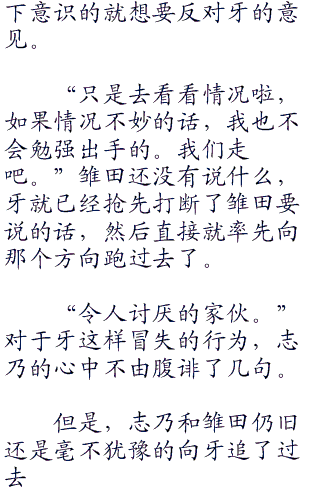 下意识的就想要反对牙的意
见。
“只是去看看情况啦，
如果情况不妙的话，我也不
会勉强出手的。我们走
吧。”雏田还没有说什么，
牙就已经抢先打断了雏田要
说的话，然后直接就率先向
那个方向跑过去了。
“令人讨厌的家伙。”
对于牙这样冒失的行为，志
乃的心中不由腹诽了几句。
但是，志乃和雏田仍旧
还是毫不犹豫的向牙追了过
去